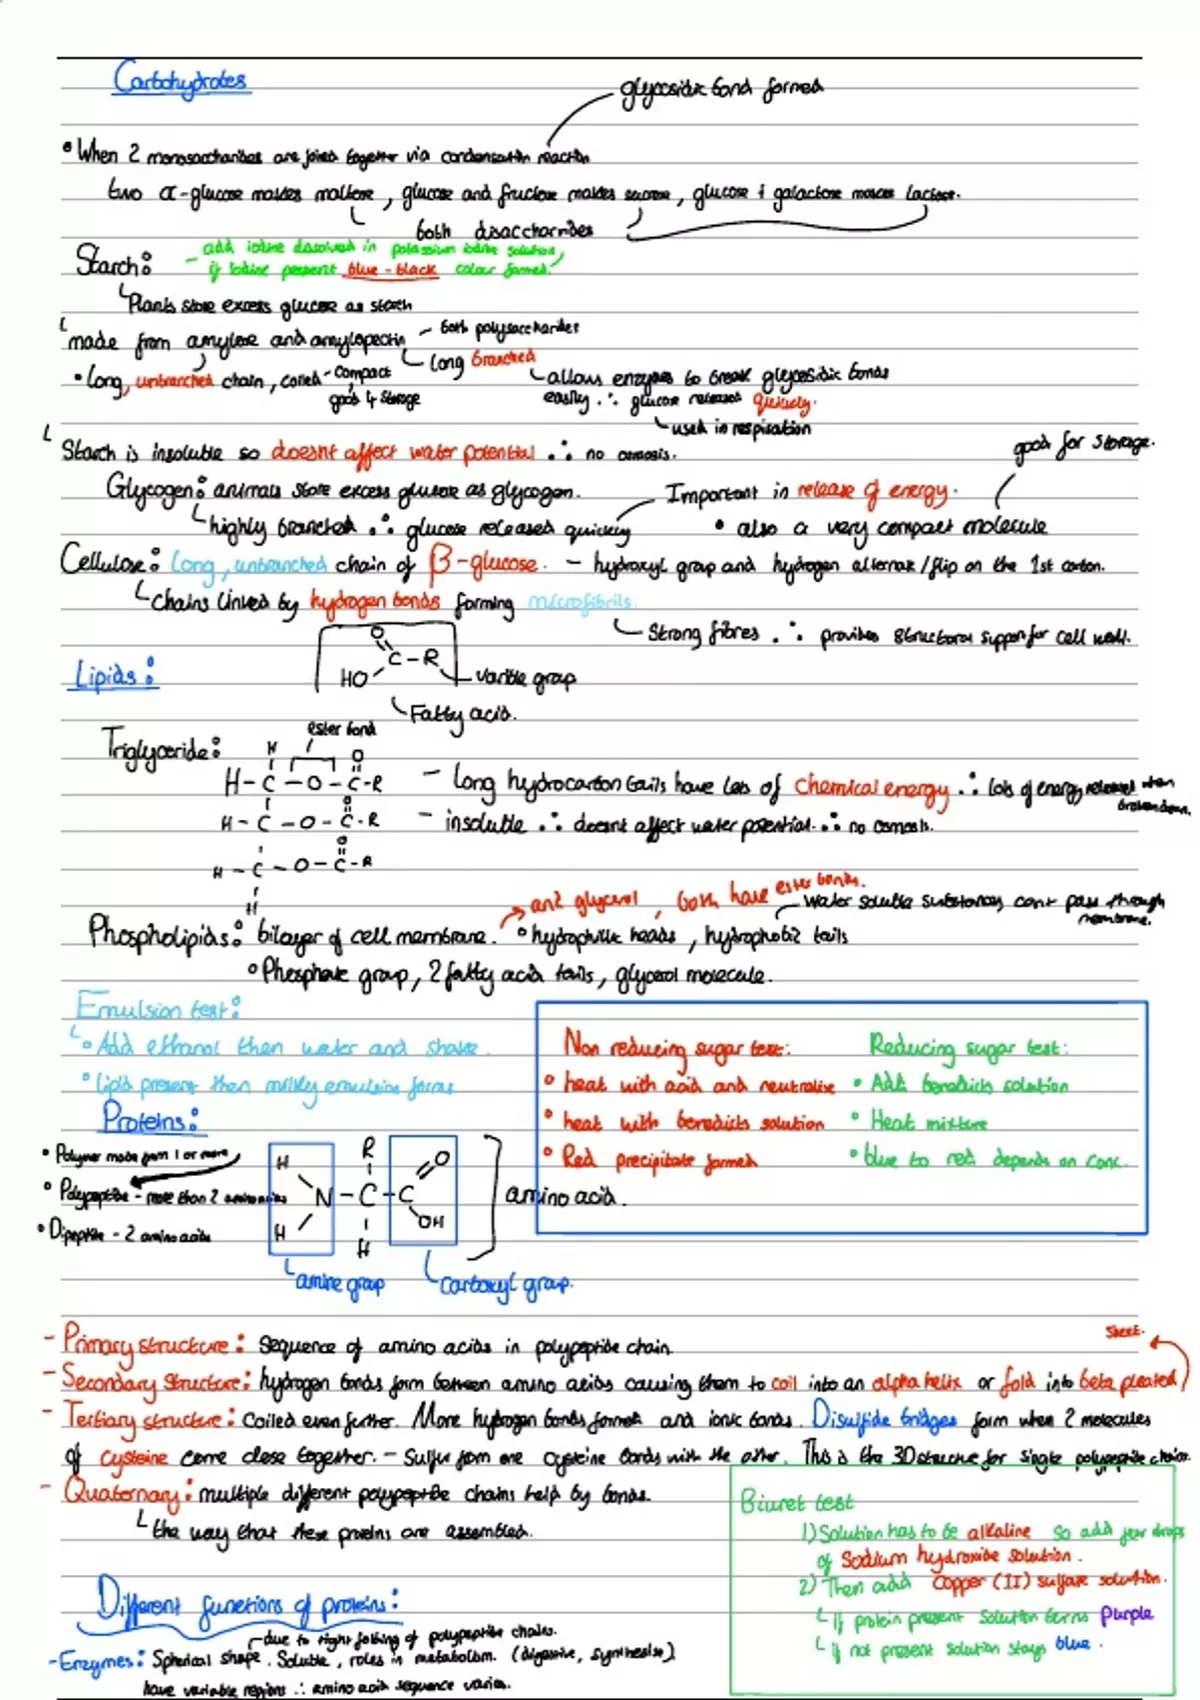 Carbohydrates
glycosidic bond formed
• When 2 monosaccharides are joined together via condensation reaction
two α-glucose makes maltose, glucose and fructose makes sucrose, glucose + galactose makes lactose.
both disaccharides
Starch:
- add iodine dissolved in potassium iodine solution,
if iodine present blue-black colour formed.
Plants store excess glucose as starch
made from amylose and amylopectin - both polysaccharides
long branched
• long, unbranched chain, coiled - compact
good 4 storage
allows enzymes to break glycosidic bonds
easily ∴ glucose released quickly.
used in respiration
Starch is insoluble so doesnt affect water potential ∴ no osmosis.
good for storage.
Glycogen: animals store excess glucose as glycogen.
Important in release of energy.
highly branched ∴ glucose released quickly
• also a very compact molecule
Cellulose: long, unbranched chain of β-glucose. - hydroxyl group and hydrogen alternate/flip on the 1st carbon.
Chains linked by hydrogen bonds forming microfibrils.
Strong fibres ∴ provides structural support for cell wall.
Lipids:
O
C - R
HO
variable group
Fatty acid.
ester bond
Triglyceride:
H O
H - C - O - C - R
O
H - C - O - C - R
O
H - C - O - C - R
H
- long hydrocarbon tails have lots of chemical energy ∴ lots of energy released when
broken down.
- insoluble ∴ doesnt affect water potential ∴ no osmosis.
and glycerol, both have ester bonds.
water soluble substances cant pass through
membrane.
Phospholipids: bilayer of cell membrane. • hydrophilic heads, hydrophobic tails
• Phosphate group, 2 fatty acid tails, glycerol molecule.
Emulsion test:
• Add ethanol then water and shake.
• lipid present then milky emulsion forms
Non reducing sugar test:
• heat with acid and neutralise
• heat with benedicts solution
• Red precipitate formed
Reducing sugar test:
• Add benedicts solution
• Heat mixture
• blue to red depends on conc.
Proteins:
• Polymer made from 1 or more
• Polypeptide - more than 2 amino acids
• Dipeptide - 2 amino acids
H R O
N - C - C
H H OH
amino acid.
amine group
carboxyl group.
- Primary structure: Sequence of amino acids in polypeptide chain.
sheet.
- Secondary structure: hydrogen bonds form between amino acids causing them to coil into an alpha helix or fold into beta pleated
- Tertiary structure: Coiled even further. More hydrogen bonds formed and ionic bonds. Disulfide bridges form when 2 molecules
of cysteine come close together. - Sulfur from one cysteine bonds with the other. This is the 3D structure for single polypeptide chains.
- Quaternary: multiple different polypeptide chains held by bonds.
the way that these proteins are assembled.
Biuret test
1) Solution has to be alkaline so add few drops
of Sodium hydroxide solution.
2) Then add Copper (II) sulfate solution.
if protein present solution turns purple
if not present solution stays blue.
Different functions of proteins:
due to tight folding of polypeptide chains.
- Enzymes: Spherical shape. Soluble, roles in metabolism. (digestive, synthesise)
have variable regions ∴ amino acid sequence varies.